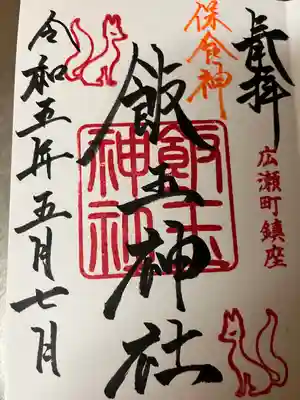 奉拝
広瀬町鎮座
保食神
飯玉神社
飯玉神社
令和五年五月七日